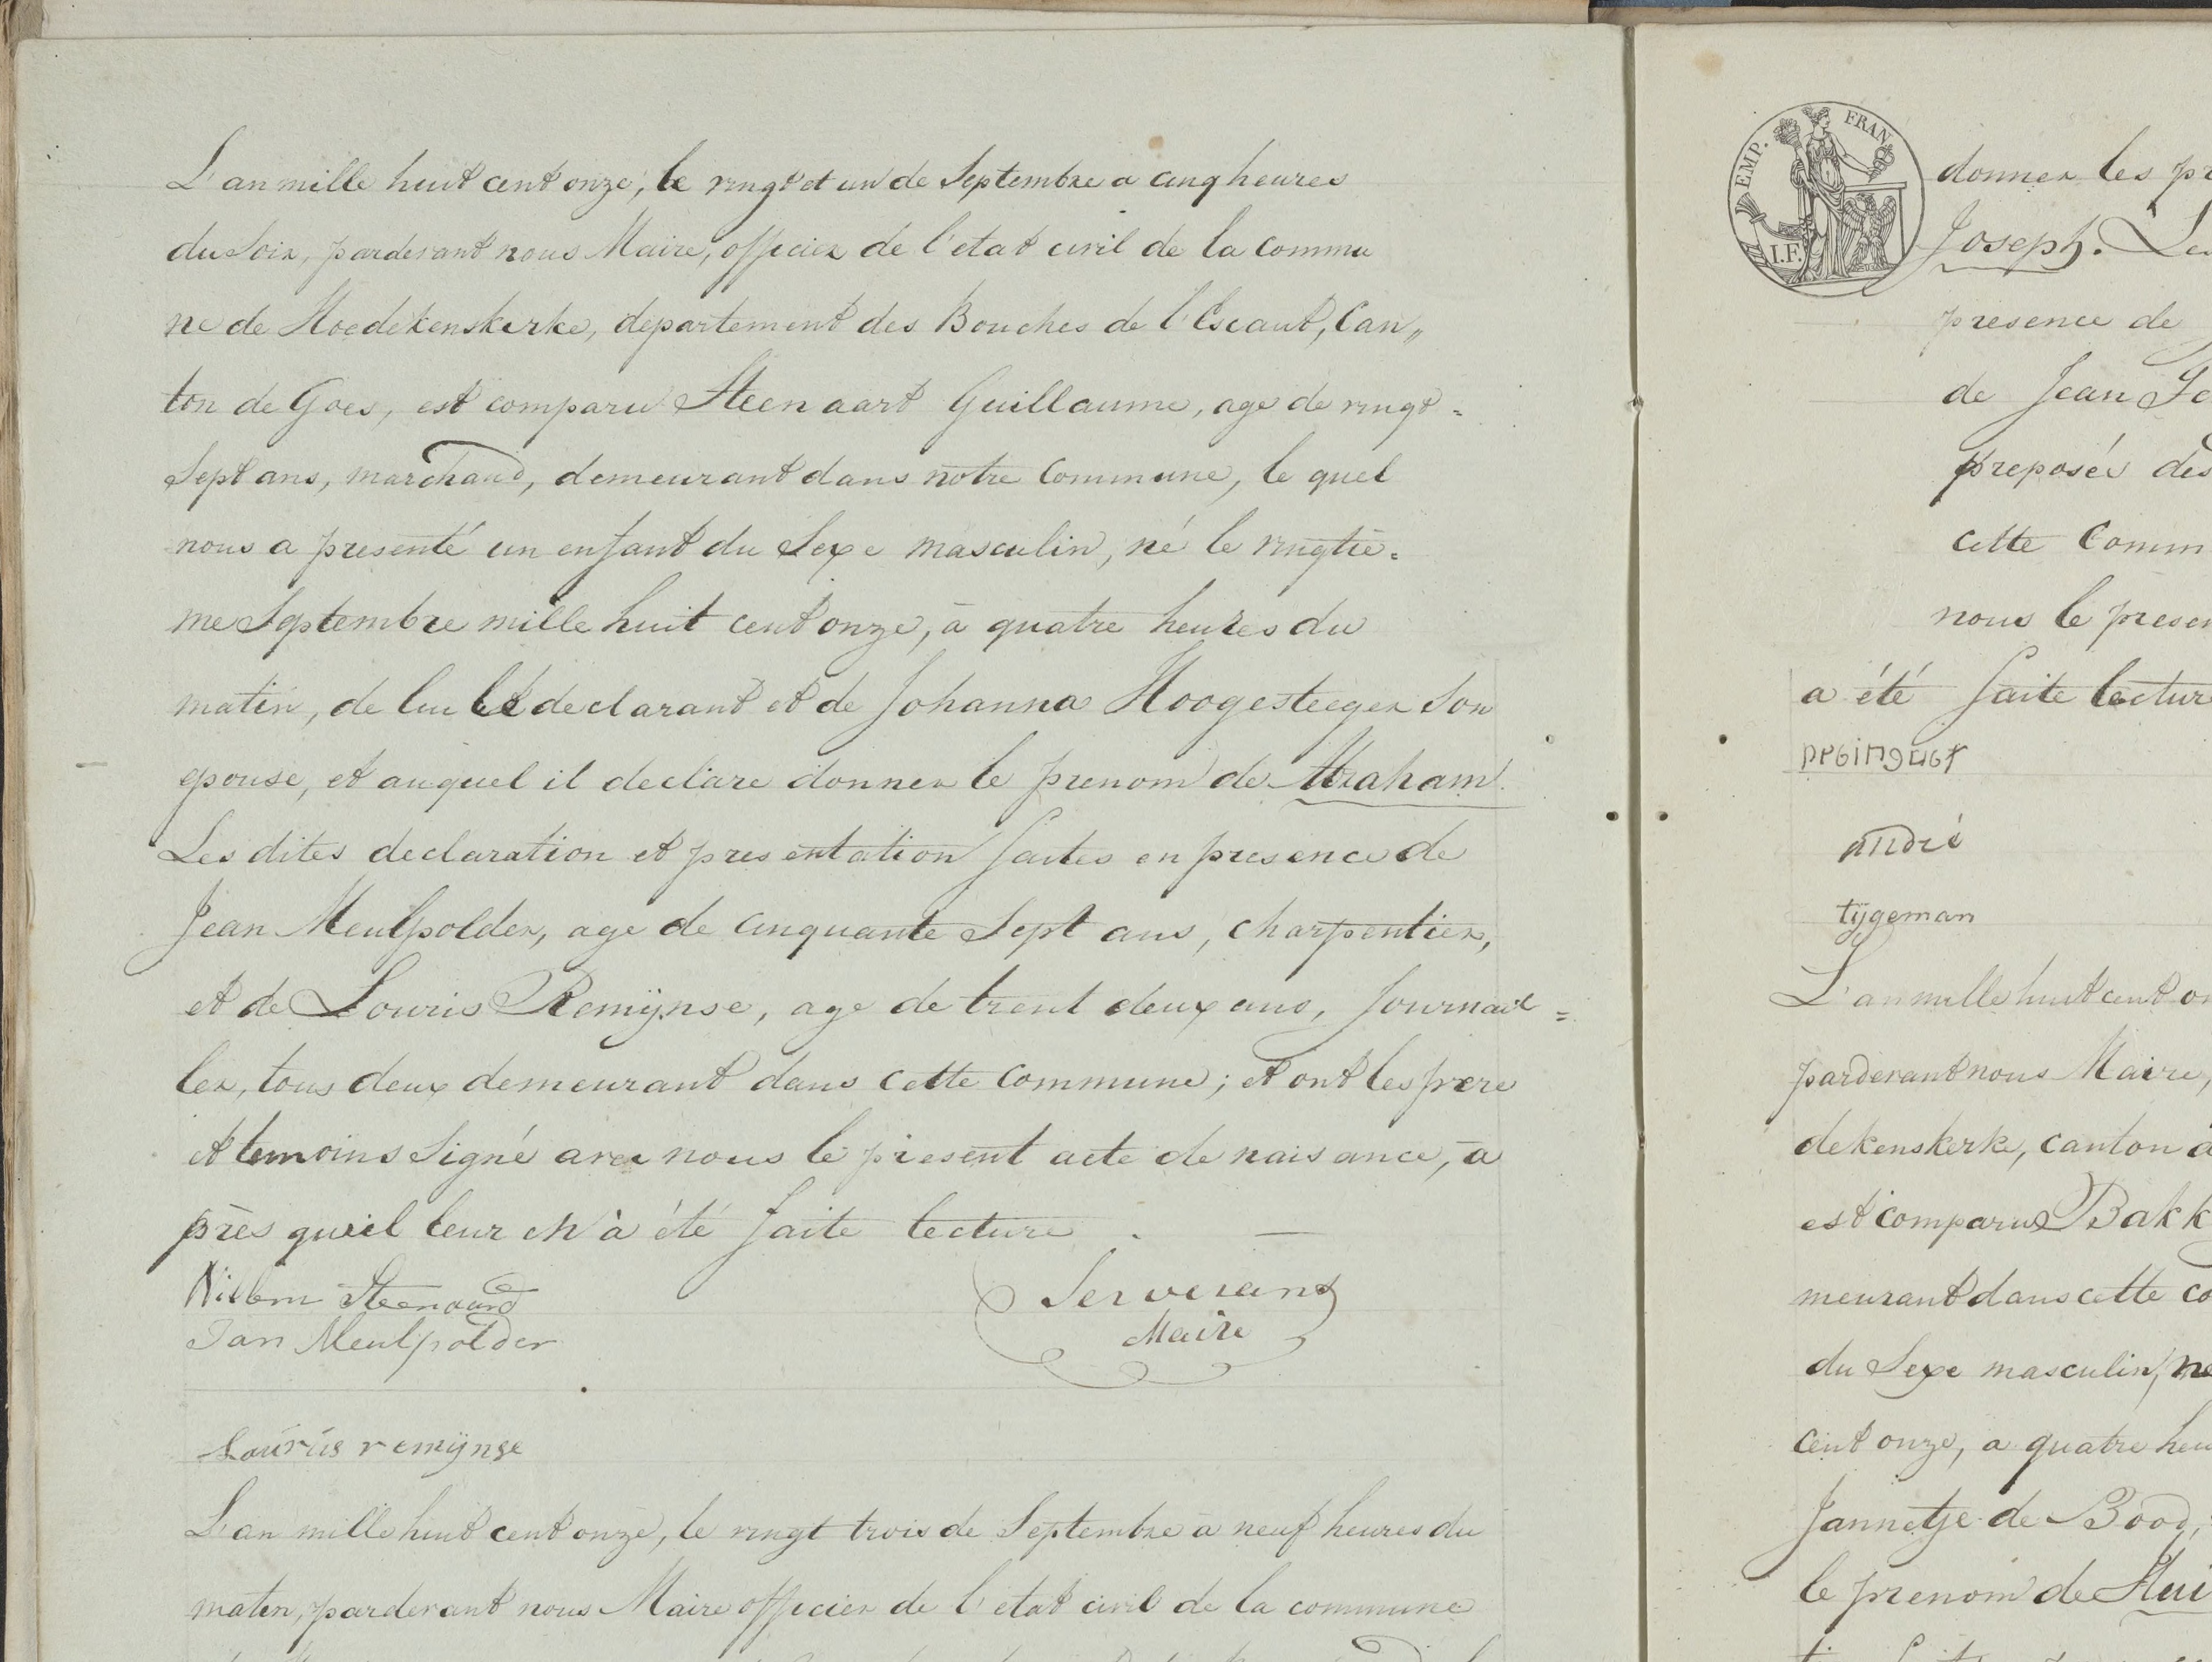 L'an mille huit cent onze, le vingt et un de Septembre a cinq heures
du Soir, pardevant nous Maire, officier de l'etat civil de la Commu
ne de Hoedekenskerke, departement des Bouches de l'Escaut, Can„
ton de Goes, est comparu Steenaart Guillaume, age de vingt=
Sept ans, marchand, demeurant dans notre Commune, le quel
nous a presenté un enfant du Sexe masculin, né le vingtiè=
me Septembre mille huit cent onze, à quatre heures du
matin, de lui declarant et de Johanna Hoogesteeger Son
epouse, et auquel il declare donner le prenom de Abraham.
Les dites declaration et presentation faites en presence de
Jean Meulpolder, age de cinquante Sept ans, charpentier,
et de Louris Remijnse, age de trent deux ans, Journail=
ler, tous deux demeurant dans cette commune; et ont les pere
et temoins Signé avec nous le present acte de naisance, a
près qu'il leur en à été faite lecture.
Willem Steenaard
Jan Meulpolder
Serverans
Maire
Lauris remijnse
L'an mille huit cent onze, le vingt trois de Septembre a neuf heures du
maten, pardevant nous Maire officier de l'etat civil de la commune
EMP. FRAN.
I.F.
donner les pr
Joseph. Les
presence de
de Jean
preposés des
cette Comm
nous le presen
a été faite lectur
andré
tijgeman
L'an mille huit cent on
pardevant nous Maire,
dekenskerke, canton d
est comparu Bakk
meurant dans cette co
du Sexe masculin, ne
cent onze, a quatre heu
Jannetje de Bood,
le prenom de Hui